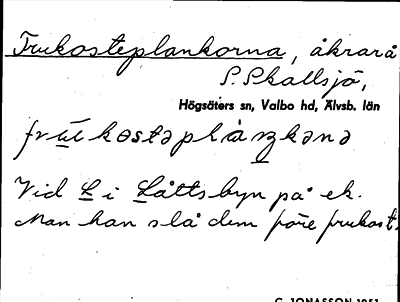 Frukosteplankorna, åkrar å
S. Skallsjö,
Högsäters sn, Valbo hd, Älvsb. län
Vid L i Låttsbyn på ek.
Man han slå dem före frukost.
G. JONASSON 1951